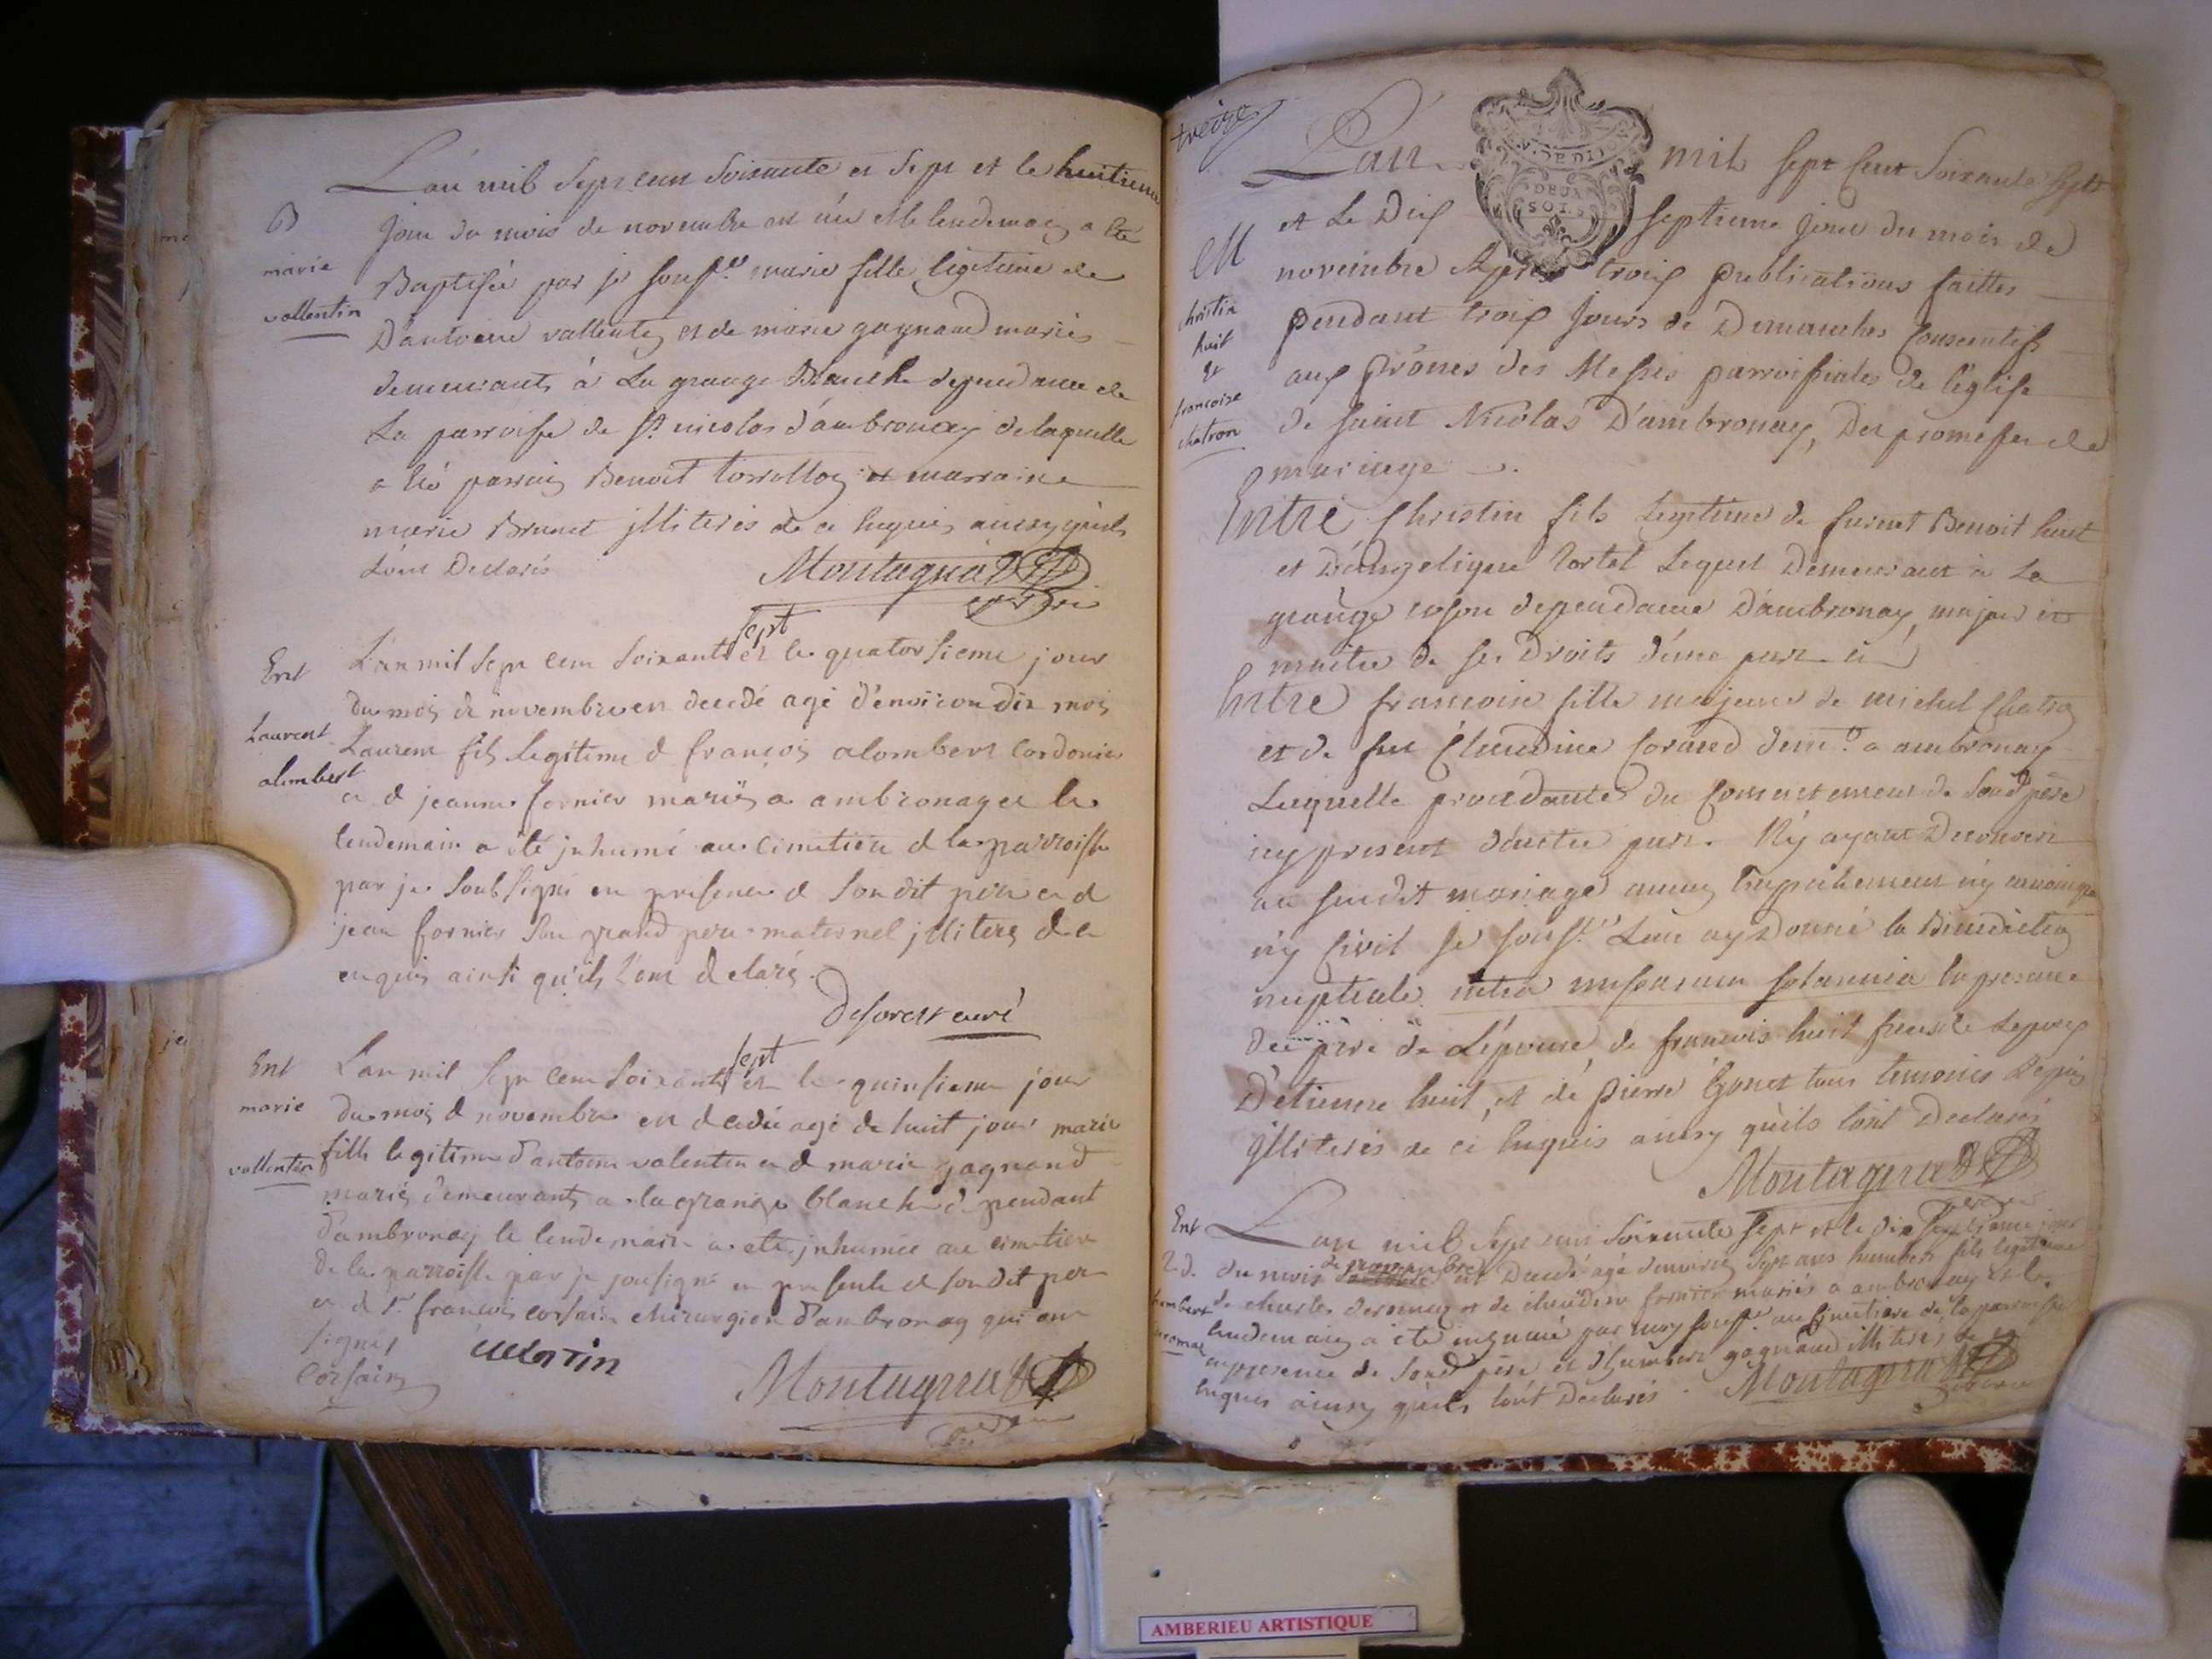 B
marie
vallentin
L'an mil Sept cent Soixante et Sept et le huitieme
jour du mois de novembre est née et le lendemain a été
Baptisée par je souss.né marie fille legitime de
D'antoine vallentin et de marie gagnand mariés
demeurants à La grange Blanche dependance de
La parroisse de st. nicolas d'ambronay de laquelle
a été parrain Benoit et marraine
marie Brunet illiterés de ce enquis ainsy qu'ils
L'ont Declarés
Montagnad
Ent
Laurent
alombert
L'an mil Sept cent Soixante sept et le quatorsieme jour
du mois de novembre est decedé agé d'environ dix mois
Laurent fils legitime d françois alombert Cordonier
et d jeanne fornier mariés a ambronay et le
lendemain a été inhumé au cimetiere d la parroisse
par je Soubsigné en presence d Son dit pere et d
jean fornier Son grand pere maternel illiterés de ce
enquis ainsi qu'ils l'ont declaré.
Deforest curé
Ent
marie
vallentin
L'an mil Sept cent Soixante sept et le quinsieme jour
du mois d novembre est decedée agé de huit jours marie
fille legitime d'antoine valentin et d marie gagnand
mariés demeurants a la grange blanche dependant
d'ambronay le lendemain a eté inhumée au cimetiere
de la parroisse par je sousigné en presence d son dit pere
et d Sr. françois corsain chirurgien d'ambronay qui ont
signés
Corsain
valentin
Montagnad
treize
M
christin
huit
et
francoise
chatron
L'an mil sept Cent Soixante Sept
DEUX
SOLS
et Le Dix septieme jour du mois de
novembre Après trois publications faittes
pendant trois jours de Dimanches Consecutifs
aux prônes des Messes parroissiales de l'église
de saint Nicolas D'ambronay, Des promesses de
mariage.
Entre Christin fils Legitime de furent Benoit huit
et D'angelique Lequel Demeurant à La
grange dependance D'ambronay, majeur et
maitre de ses Droits d'une part et
Entre francoise fille majeure de michel Chatron
et de feu Claudine dem.t a ambronay
Laquelle procedante du Consentement de Sond père
icy present d'autre part. N'y ayant Decouvert
au susdit mariage aucun Empechement ny canonique
ny Civil je souss.né Leur ay Donné la Benediction
nuptiale intra missarum solemnia en presence
du père de L'épouse, de francois huit frere de Lepoux
D'etienne huit, et de pierre Gonet tous temoins
illiterés de ce Enquis ainsy qu'ils l'ont Declarés
Montagnad
Ent
humbert
L'an mil Sept cent Soixante Sept et le Dix Septieme jour
du mois de novembre est Decedé agé d'environ Sept ans humbert fils legitime
de charles et de claudine fornier mariés a ambronay et le
lendemain a été inhumé par moy souss.né au Cimetiere de la parroisse
en presence de Sond père et d'humbert gagnand illiterés de ce
Enquis ainsy qu'ils l'ont Declarés.
Montagnad
AMBERIEU ARTISTIQUE